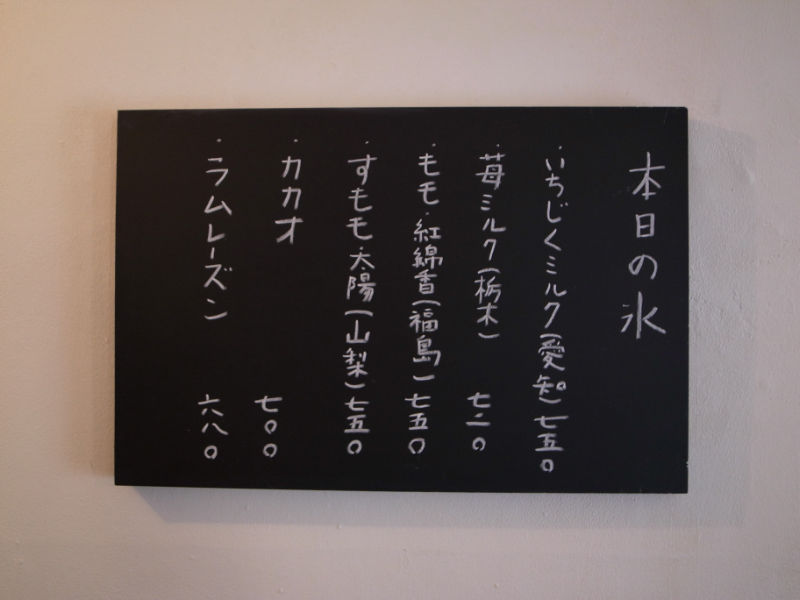 本日の氷
・いちじくミルク(愛知)七五〇
・苺ミルク(栃木) 七二〇
・もも・紅綿香(福島)七五〇
・すもも・太陽(山梨)七五〇
・カカオ 七〇〇
・ラムレーズン 六八〇